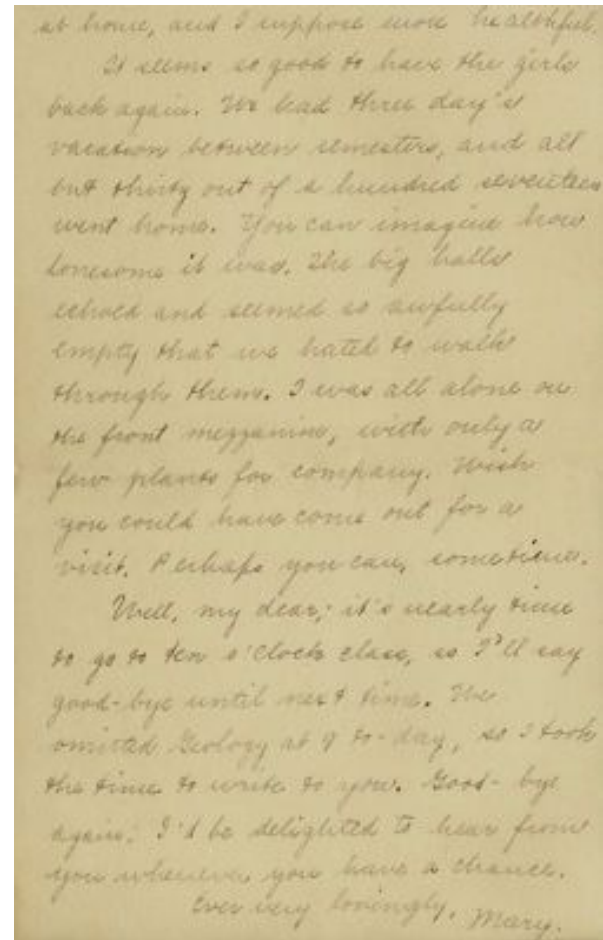 at home, and I suppose more healthful.
It seems so good to have the girls
back again. We had three day's
vacation between semesters, and all
but thirty out of a hundred seventeen
went home. You can imagine how
lonesome it was. The big halls
echoed and seemed so awfully
empty that we hated to walk
through them. I was all alone on
the front mezzanine, with only a
few plants for company. Wish
you could have come out for a
visit. Perhaps you can, sometime.
Well, my dear; it's nearly time
to go to ten o'clock class, so I'll say
good-bye until next time. We
omitted Geology at 9 to-day, so I took
the time to write to you. Good-bye
again. I'd be delighted to hear from
you whenever you have a chance.
Ever very lovingly, Mary.